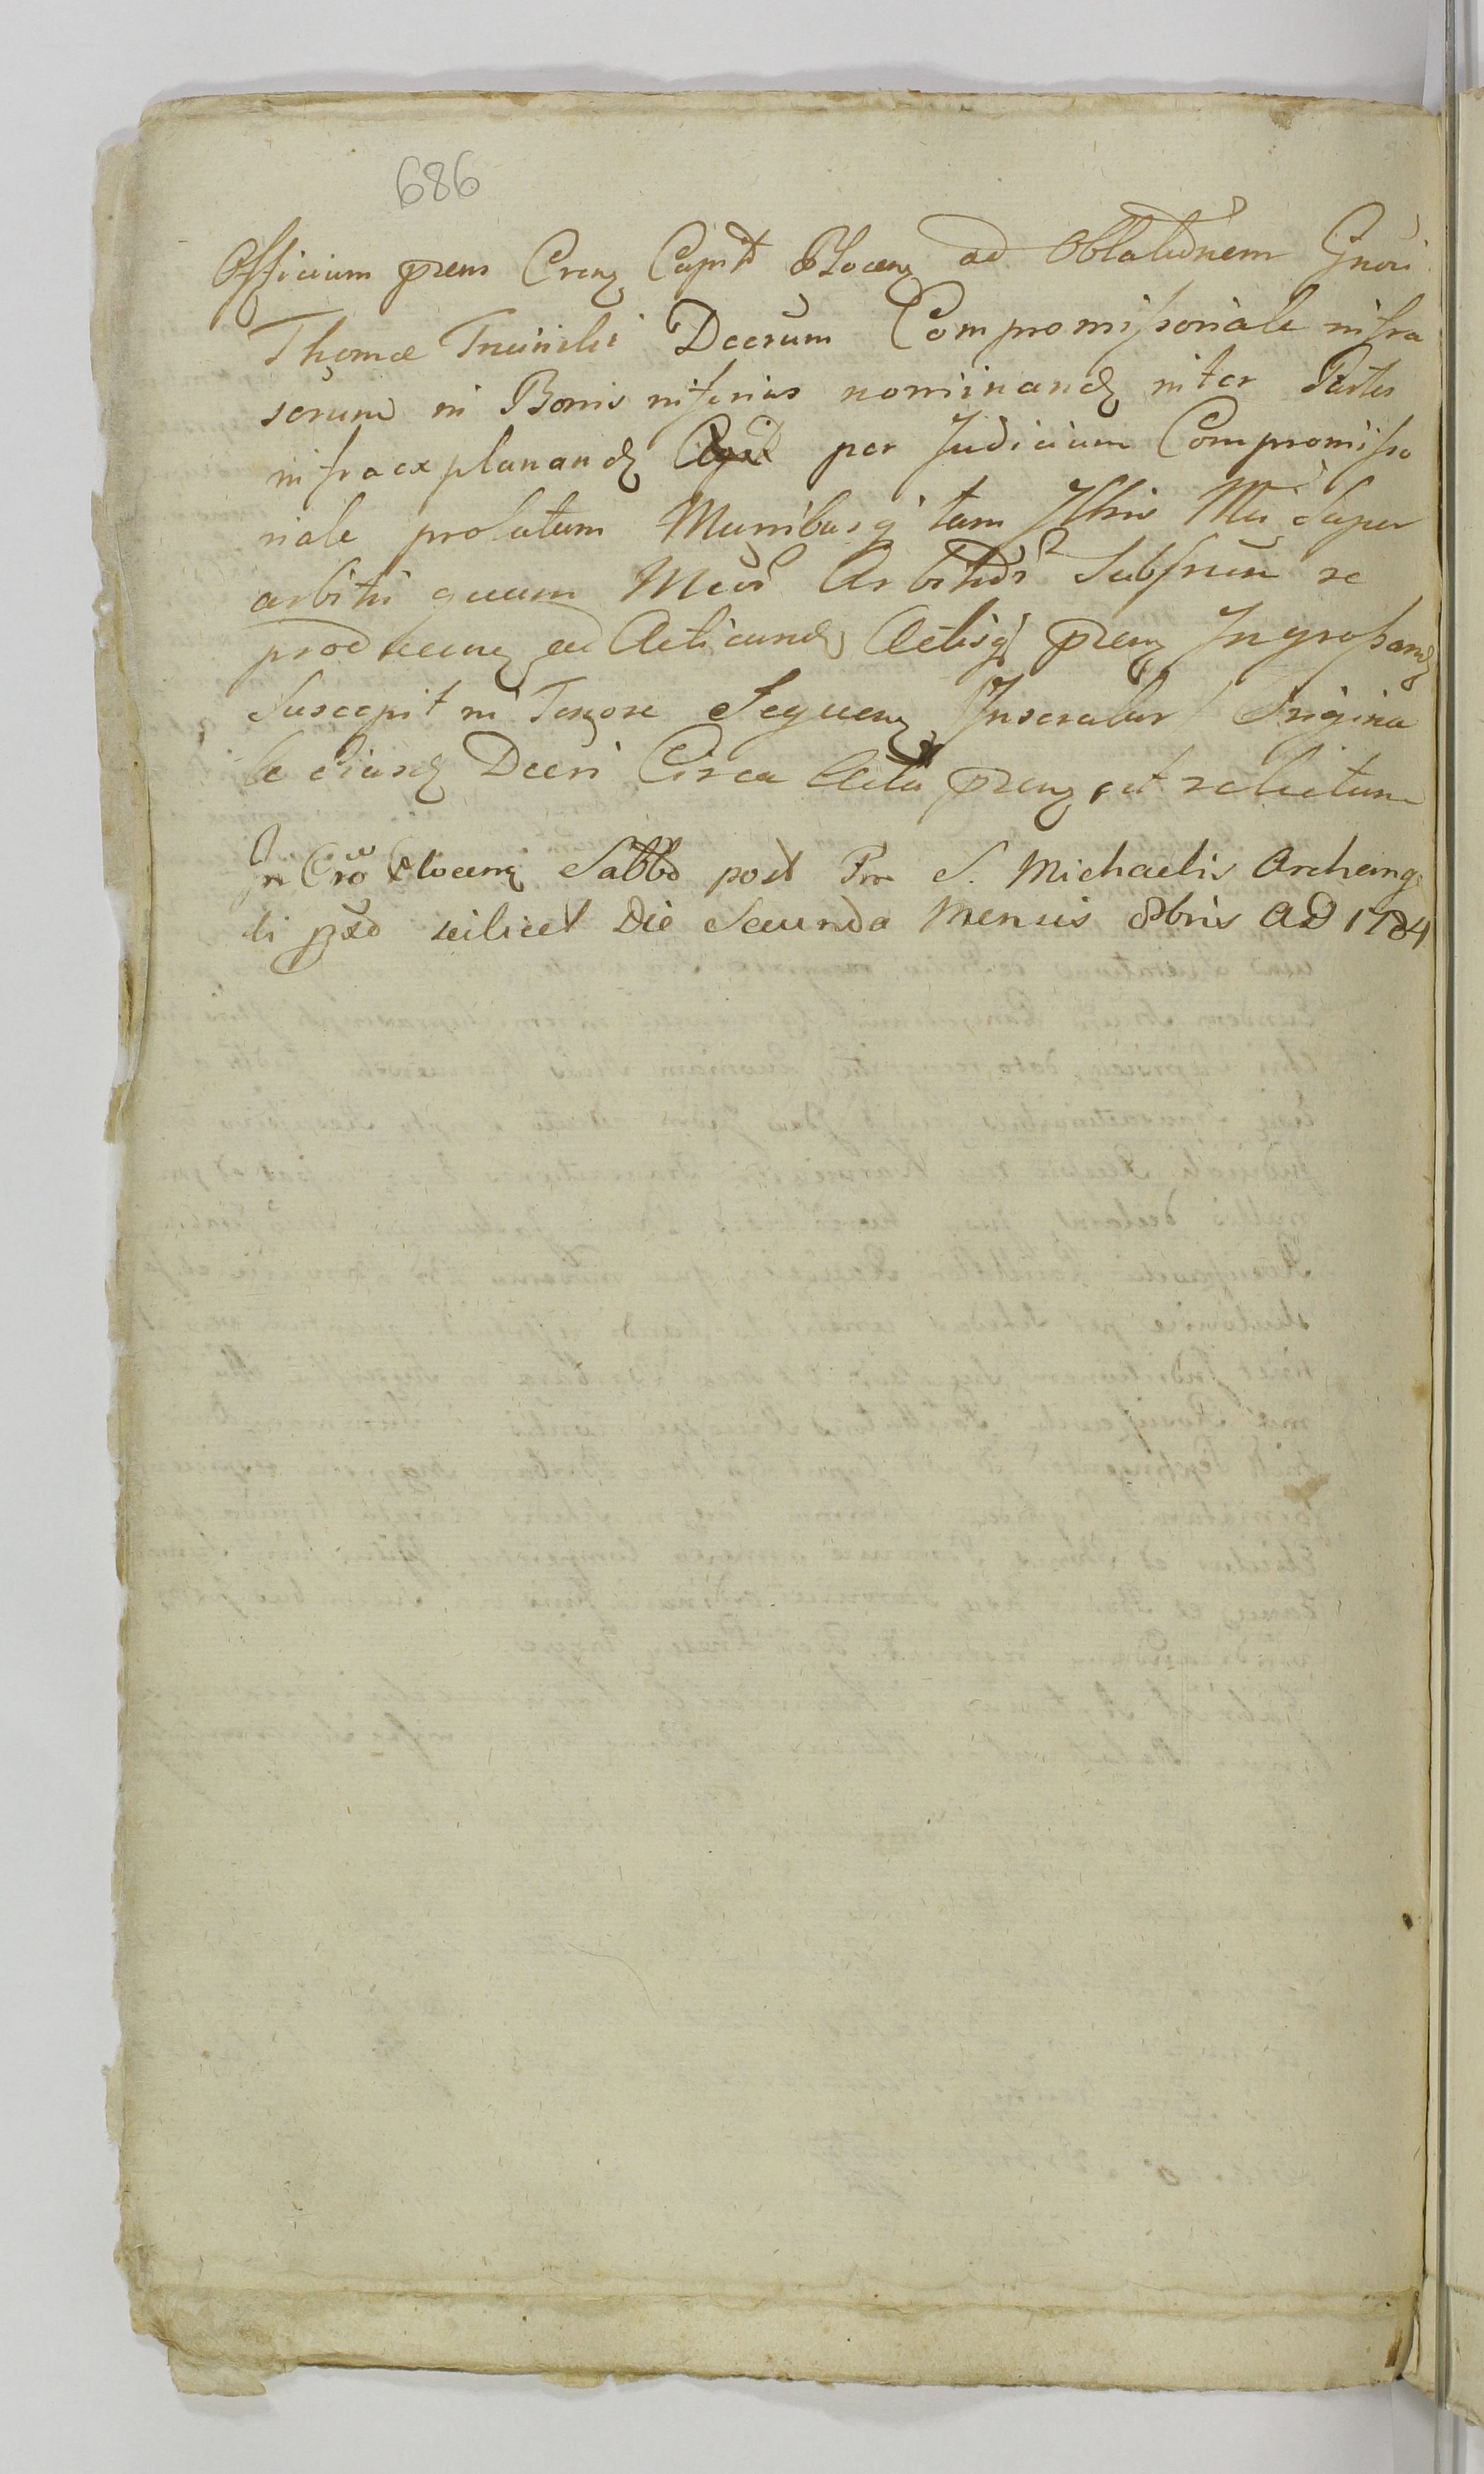 686
Officium prens Crenz Capit Plocenz ad Oblationem Gnõri
Thomæ Decrum Compromissoriale infra
scrum in Bonis inferius nominandz inter Partes
infra explanandz per Judicium Compromisso
riale prolatum Manibusq tam Illris Mci Super
arbitri quam Mcor Arbitror Subscrum re
producenz ad Acticandz Actisq prenz Ingrossandz
Suscepit in Tenore Sequenz Inseratur Origina
le eiusdz Decri Circa Acta prenz est relictum
In Cro Plocenz Sabbo post Fm S. Michaelis Archang
li pxo scilicet Die Secunda Mensis 8bris AD 1784